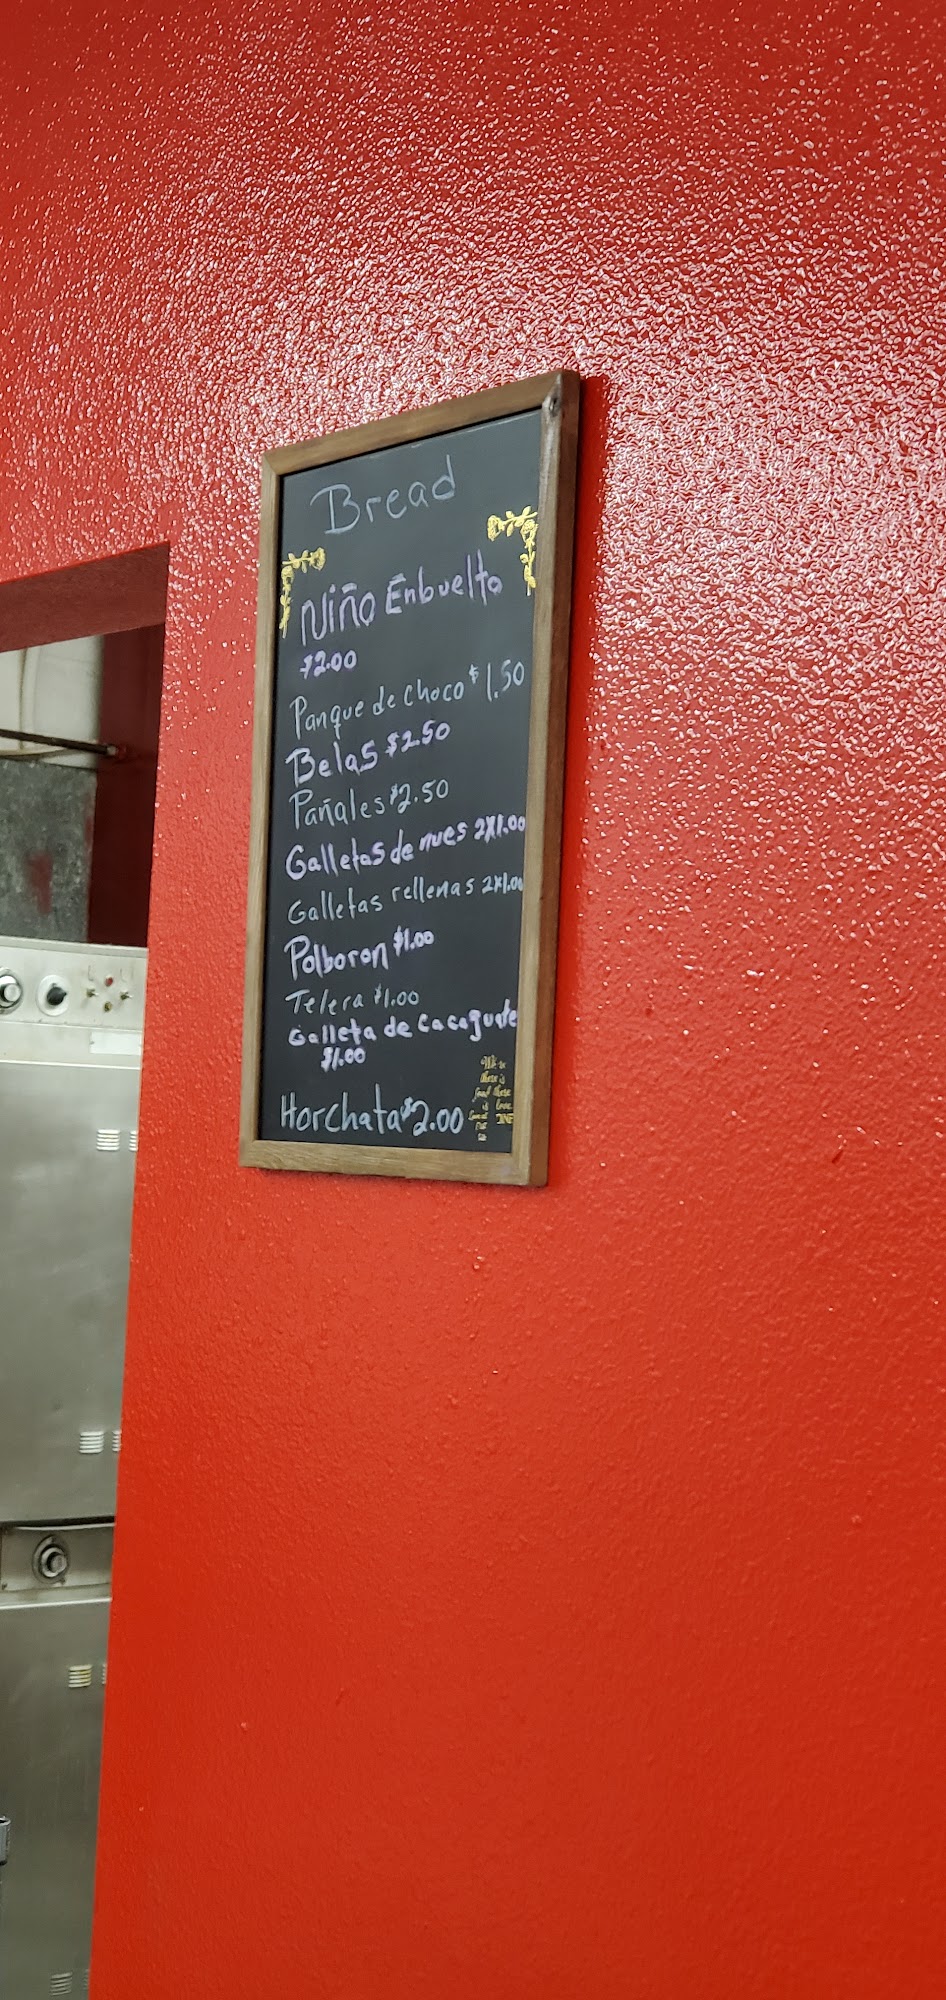 Bread
Niño Enbuelto
$2.00
Panque de choco $1.50
Belas $2.50
Pañales $2.50
Galletas de nues 2X1.00
Galletas rellenas 2X1.00
Polboron $1.00
Telera $1.00
Galleta de cacaguate
$1.00
Horchata $2.00